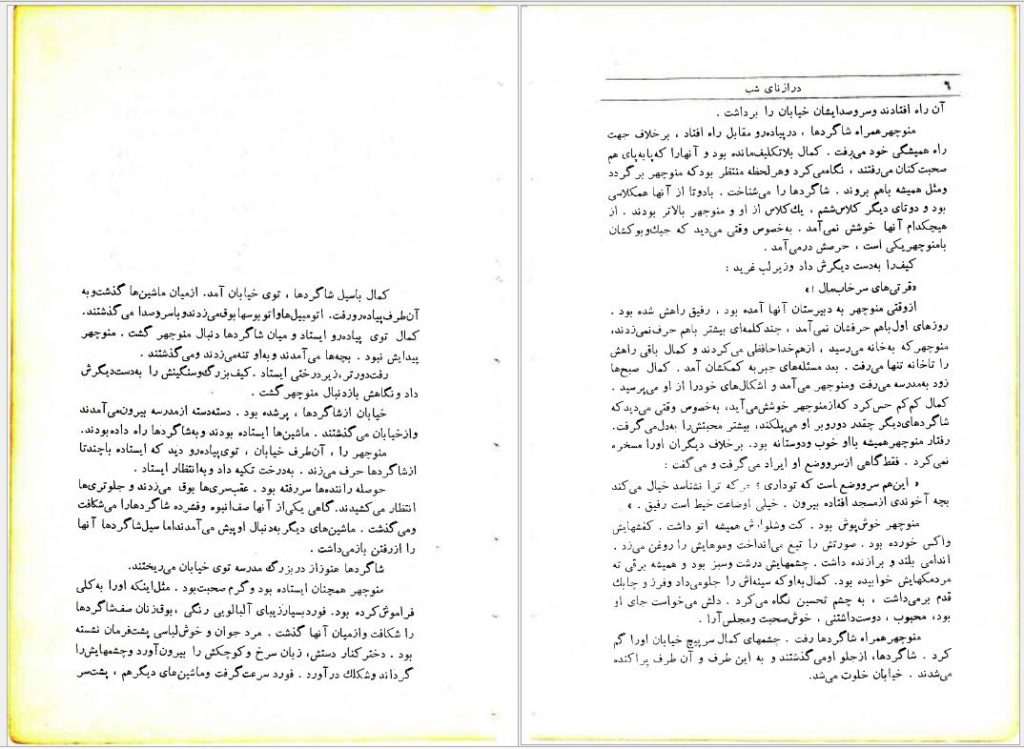 کمال باسیل شاگردها ، توی خیابان آمد. ازمیان ماشین‌ها گذشت‌وبه
آن‌طرف پیاده‌رورفت. اتومبیل‌هاواتوبوسهابوق‌می‌زدندوباسروصدا می‌گذشتند.
کمال توی پیاده‌رو ایستاد و میان شاگردها دنبال منوچهر گشت . منوچهر
پیدایش نبود . بچه‌ها می‌آمدند وبه‌او تنه‌می‌زدند ومی‌گذشتند .
رفت‌دورتر،زیردرختی ایستاد . کیف‌بزرگ‌وسنگینش را به‌دست‌دیگرش
داد ونگاهش بازدنبال منوچهر گشت .
خیابان ازشاگردها ، پرشده بود . دسته‌دسته ازمدرسه بیرون‌می‌آمدند
وازخیابان می‌گذشتند . ماشین‌ها ایستاده بودند وبه‌شاگردها راه داده‌بودند.
منوچهر را ، آن‌طرف خیابان ، توی‌پیاده‌رو دید که ایستاده باچندتا
ازشاگردها حرف می‌زند . به‌درخت تکیه داد وبه‌انتظار ایستاد .
حوصله راننده‌ها سررفته بود . عقب‌سری‌ها بوق می‌زدند و جلوتری‌ها
انتظار می‌کشیدند.گاه یکی‌از آنها صف‌انبوه وفشرده شاگردهارا می‌شکافت
ومی‌گذشت . ماشین‌های دیگر به‌دنبال اوپیش می‌آمدنداما سیل‌شاگردها آنها
را ازرفتن بازمی‌داشت .
شاگردها هنوزاز دربزرگ مدرسه توی خیابان می‌ریختند.
منوچهر همچنان ایستاده بود و گرم صحبت‌بود . مثل‌اینکه اورا به‌کلی
فراموش‌کرده بود. فوردبسیارزیبای آلبالویی رنگی ،بوق‌زنان صف‌شاگردها
را شکافت وازمیان آنها گذشت . مرد جوان و خوش‌لباسی پشت‌فرمان نشسته
بود . دخترکنار دستش، زبان سرخ وکوچکش را بیرون‌آورد وچشمهایش‌را
گرداند وشکلك درآورد . فورد سرعت‌گرفت وماشین‌های دیگرهم ، پشت‌سر
درازنای شب
٦
آن راه افتادند وسروصدایشان خیابان را برداشت .
منوچهرهمراه شاگردها ، درپیاده‌رو مقابل راه افتاد ، برخلاف جهت
راه همیشگی خود می‌رفت . کمال بلاتکلیف‌مانده بود و آنهارا که‌پابه‌پای هم
صحبت‌کنان می‌رفتند ، نگاه‌می‌کرد وهرلحظه منتظر بودکه منوچهر برگردد
ومثل همیشه باهم بروند . شاگردها را می‌شناخت . بادوتا از آنها همکلاسی
بود و دوتای دیگر کلاس‌ششم ، یك‌کلاس از او و منوچهر بالاتر بودند . از
هیچکدام آنها خوشش نمی‌آمد . به‌خصوص وقتی می‌دید که جیك‌وبوکشان
بامنوچهریکی است ، حرصش درمی‌آمد .
کیف‌را به‌دست دیگرش داد وزیرلب غرید :
«قرتی‌های سرخاب‌مال !»
ازوقتی منوچهر به دبیرستان آنها آمده بود ، رفیق راهش شده بود .
روزهای اول‌باهم حرفشان نمی‌آمد ، چندکلمه‌ای بیشتر باهم حرف‌نمی‌زدند،
منوچهرکه به‌خانه می‌رسید ، ازهم‌خداحافظی می‌کردند و کمال باقی راهش
را تاخانه تنها می‌رفت . بعد مسئله‌های جبربه کمکشان آمد . کمال صبح‌ها
زود به‌مدرسه می‌رفت ومنوچهر می‌آمد و اشکال‌های خودرا از او می‌پرسید .
کمال کم‌کم حس‌کرد که‌ازمنوچهر خوشش‌می‌آید، به‌خصوص وقتی می‌دیدکه
شاگردهای‌دیگر چقدر دوروبر او می‌پلکند، بیشتر محبتش‌را به‌دل‌می‌گرفت.
رفتار منوچهرهمیشه بااو خوب ودوستانه بود. برخلاف دیگران اورا مسخره
نمی‌کرد . فقط‌گاهی ازسرووضع او ایراد می‌گرفت و می‌گفت :
« این‌هم سرووضع است که توداری ؟ هرکه ترا نشناسد خیال می‌کند
بچه آخوندی ازمسجد افتاده بیرون . خیلی اوضاعت خیط است رفیق . »
منوچهر خوش‌پوش بود . کت وشلوارش همیشه اتو داشت . کفشهایش
واکس خورده بود . صورتش را تیغ می‌انداخت وموهایش را روغن می‌زد .
اندامی بلند و برازنده داشت . چشمهایش درشت وسبز بود و همیشه برقی ته
مردمکهایش خوابیده بود. کمال‌به‌اوکه سینه‌اش را جلومی‌داد وفرز و چابك
قدم برمی‌داشت ، به چشم تحسین نگاه می‌کرد . دلش می‌خواست جای او
بود، محبوب ، دوست‌داشتنی ، خوش‌صحبت ومجلس‌آرا .
منوچهرهمراه شاگردها رفت . چشمهای کمال سرپیچ خیابان اورا گم
کرد . شاگردها، ازجلو اومی‌گذشتند و به این طرف و آن طرف پراکنده
می‌شدند . خیابان خلوت می‌شد.